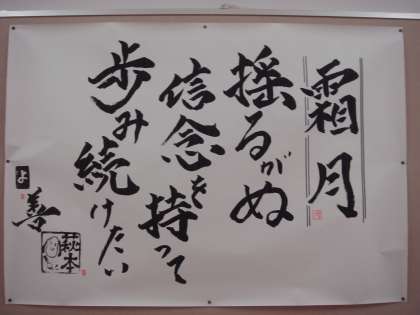 霜月
揺るがぬ
信念を持って
歩み続けたい
よ
善
萩本